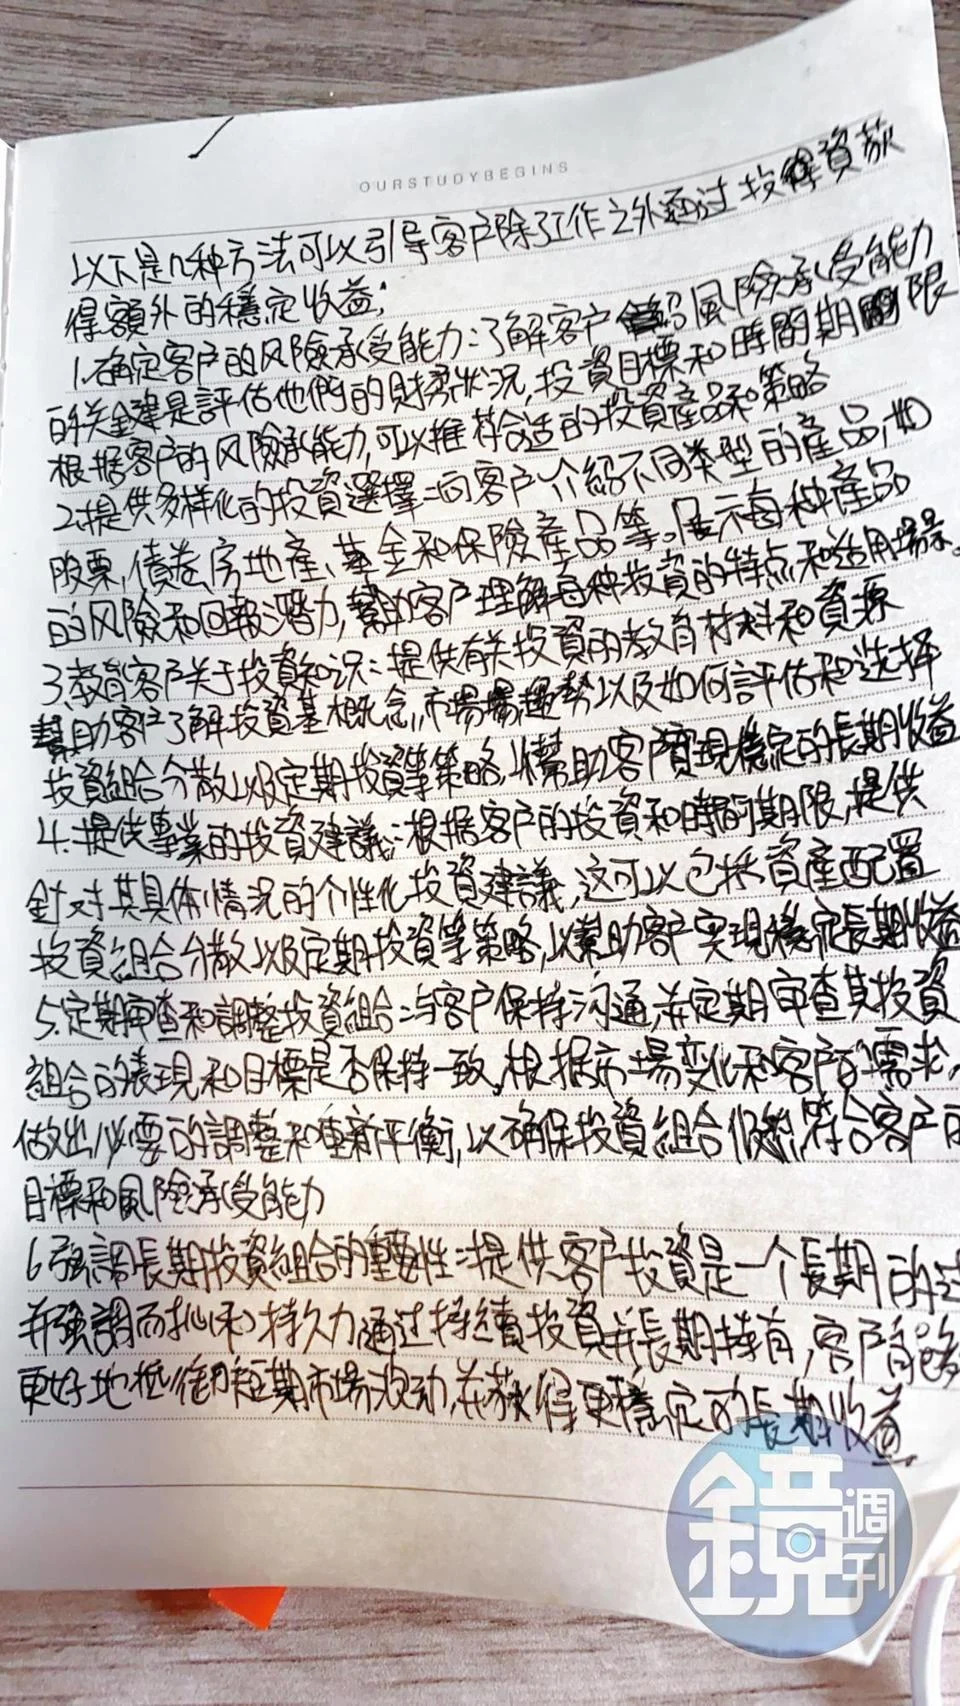 OURSTUDYBEGINS
以下是几种方法可以引导客户除了工作之外通过投資获
得額外的穩定收益:
1.确定客户的风險承受能力:了解客户風險承受能力
的关鍵是評估他們的財务狀况,投資目標和時間期限
根据客户的风險承能力,可以推符合适的投資產品和策略
2.提供多样化的投資選擇:向客户介紹不同类型的產品,如
股票,債卷,房地產、基金和保險產品等。展示每种產品
的风險和回報潛力,幫助客户理解每种投資的特点和适用場景。
3.教育客户关于投資知识:提供有关投資的教育材料和資源
幫助客户了解投資基本概念,市場趨勢以及如何評估和选择
投資組合分散以及定期投資等策略,以幫助客户實現穩定的長期收益
4.提供專業的投資建議:根据客户的投資和時間期限,提供
針对其具体情况的个性化投資建議,这可以包括資產配置
投資組合分散以及定期投資等策略,以幫助客户实現穩定長期收益
5.定期審查和調整投資組合:与客户保持沟通,并定期審查其投資
組合的表現和目標是否保持一致,根据市場变化和客户的需求,
做出必要的調整和重新平衡,以确保投資組合仍然符合客户的
目標和風險承受能力
6强調長期投資組合的重要性:提供客户投資是一个長期的过
并強調而心和持久力通过持續投資并長期持有,客户能够
更好地抵御短期市場波动,并获得更穩定的長期收益.
鏡週刊